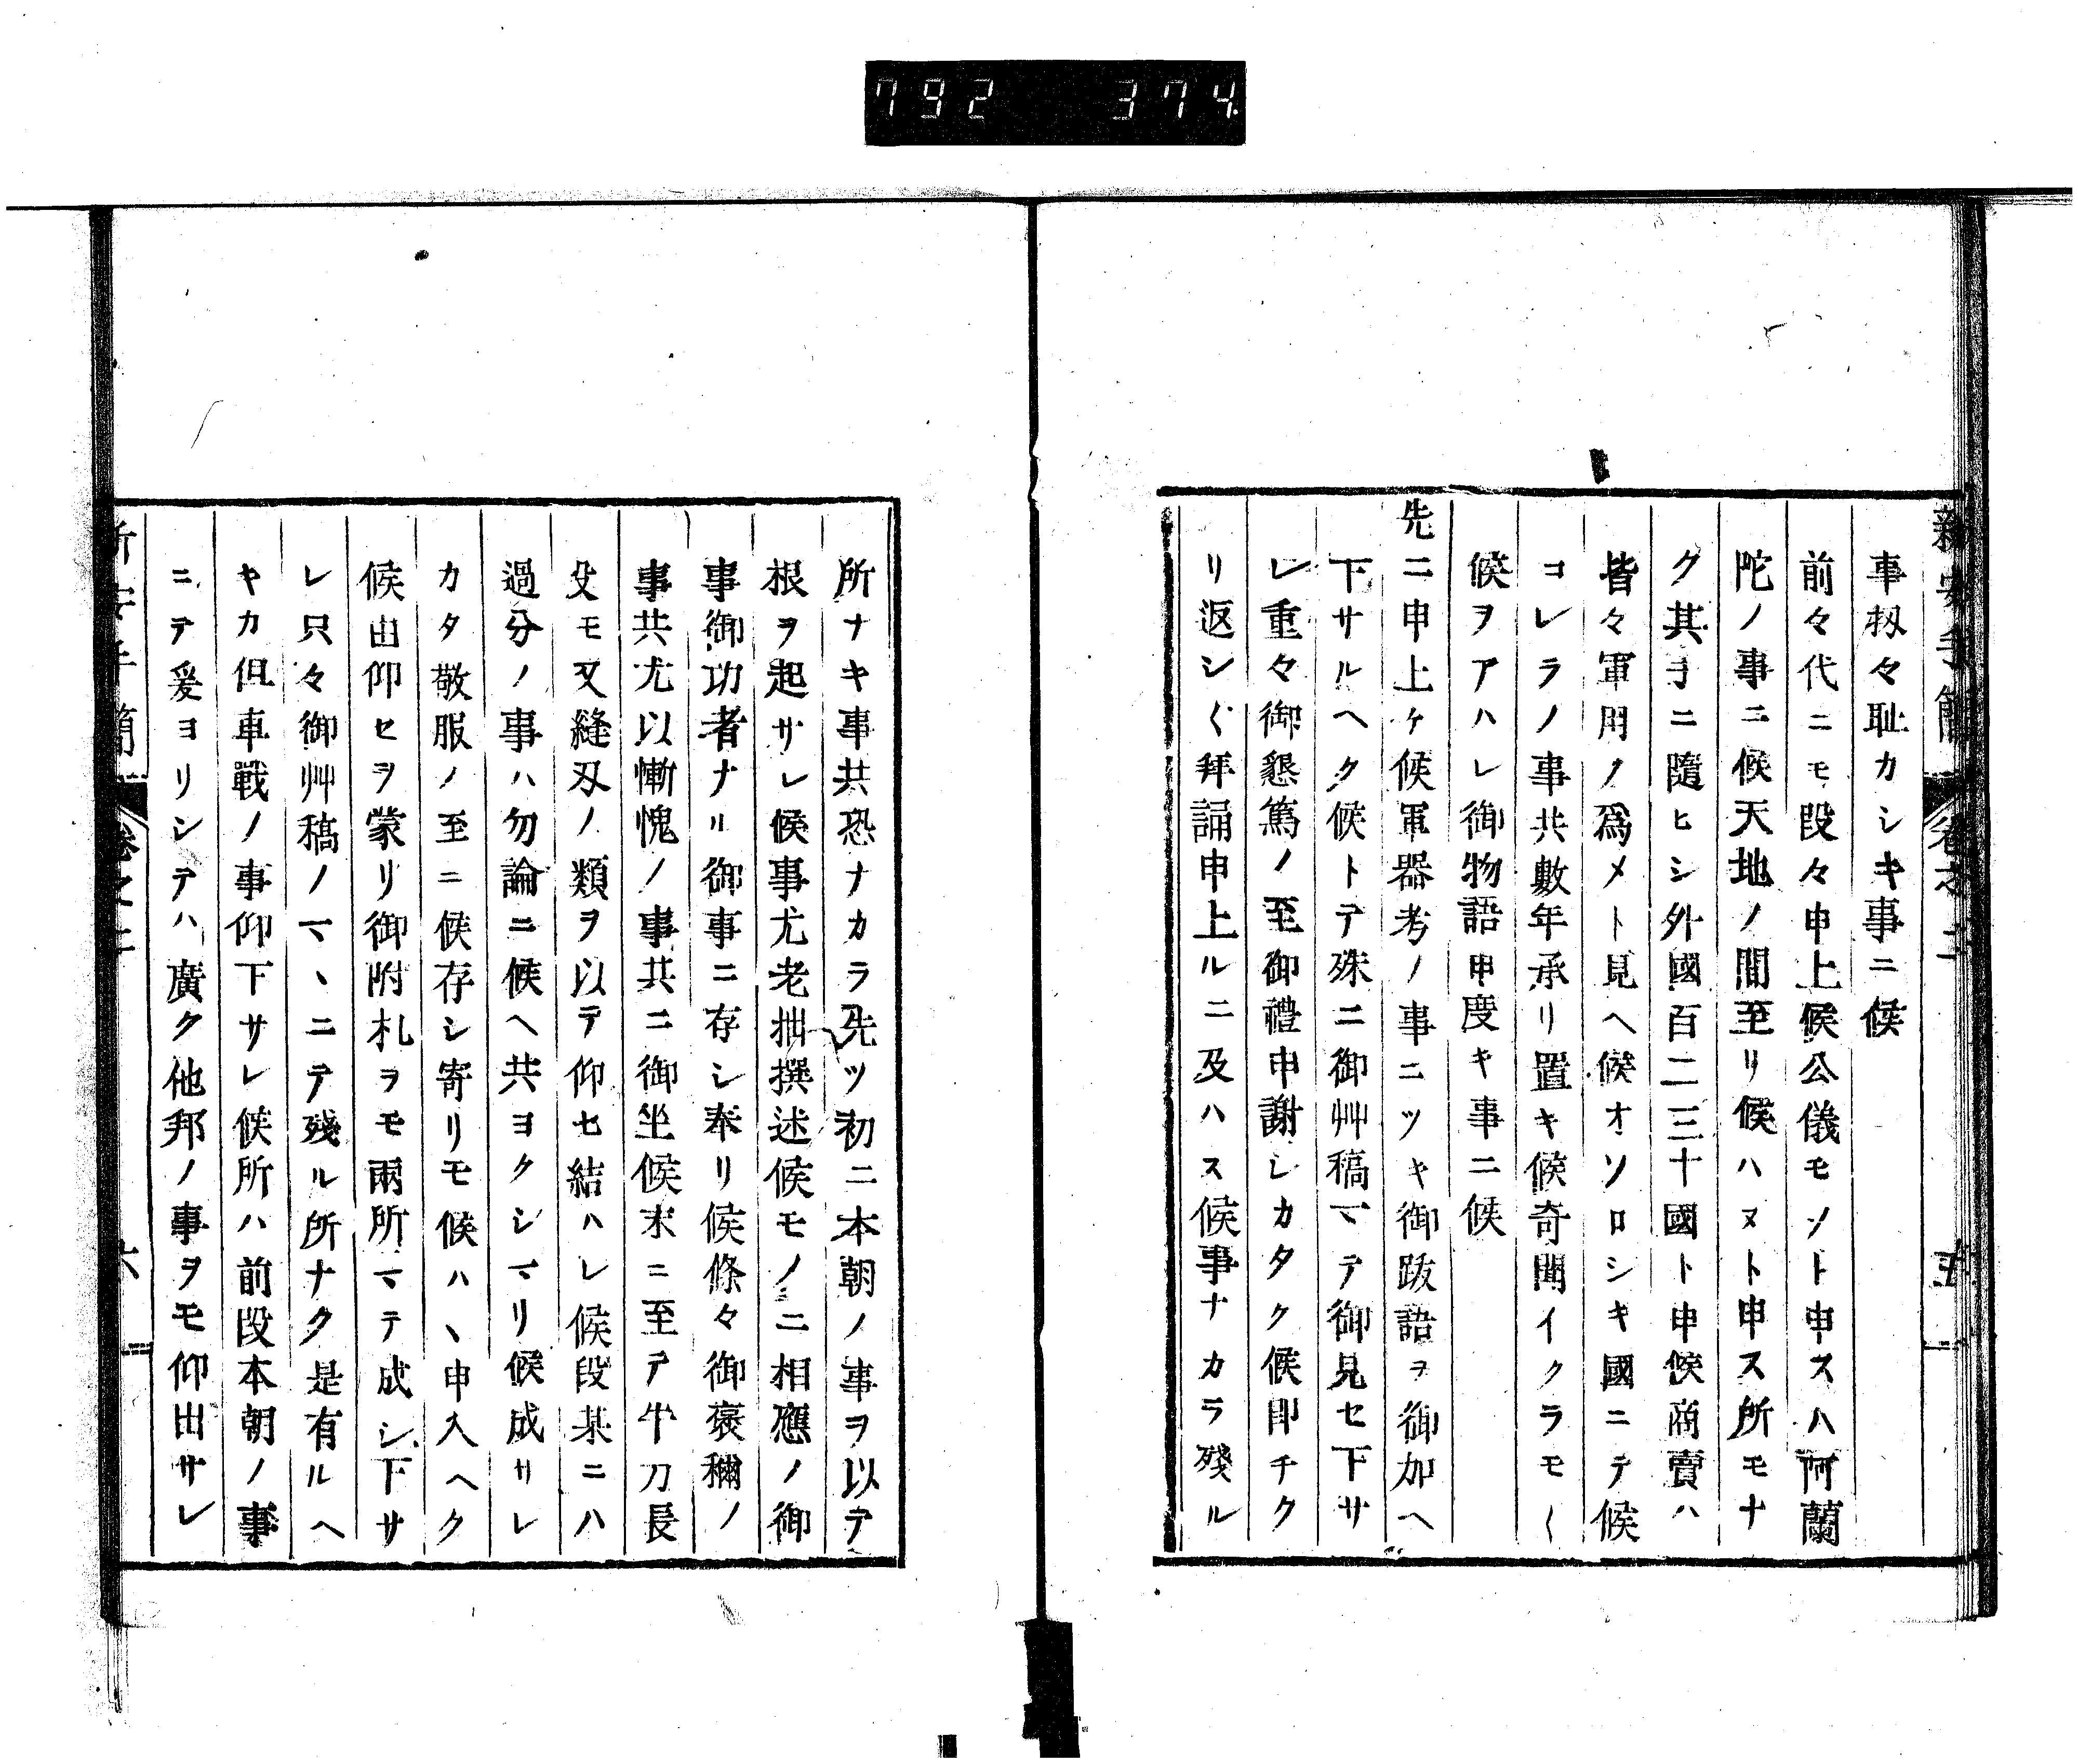 792 374
新安手簡 卷之二 五
事扨々耻カシキ事ニ候
前々代ニモ段々申上候公儀モノト申スハ阿蘭
陀ノ事ニ候天地ノ間至リ候ハヌト申ス所モナ
ク其ヨニ隨ヒシ外國百二三十國ト申候商賣ハ
皆々軍用ノ爲メト見ヘ候オソロシキ國ニテ候
コレラノ事共數年承リ置キ候奇聞イクラモ〱
候ヲアハレ御物語申度キ事ニ候
先ニ申上ケ候軍器考ノ事ニツキ御跋語ヲ御加ヘ
下サルヘク候トテ殊ニ御艸稿マテ御見セ下サ
レ重々御懇篤ノ至御禮申謝シカタク候即チク
リ返シ〱拜誦申上ルニ及ハス候事ナカラ殘ル
所ナキ事共恐ナカラ先ツ初ニ本朝ノ事ヲ以テ
根ヲ起サレ候事尤老拙撰述候モノニ相應ノ御
事御功者ナル御事ニ存シ奉リ候條々御褒穪ノ
事共尤以慚愧ノ事共ニ御坐候末ニ至テ牛刀長
殳モ又縫刄ノ類ヲ以テ仰セ結ハレ候段某ニハ
過分ノ事ハ勿論ニ候ヘ共ヨクシマリ候成サレ
カタ敬服ノ至ニ候存シ寄リモ候ハヽ申入ヘク
候由仰セヲ蒙リ御附札ヲモ兩所マテ成シ下サ
レ只々御艸稿ノマヽニテ殘ル所ナク是有ルヘ
キカ但車戰ノ事仰下サレ候所ハ前段本朝ノ事
ニテ爰ヨリシテハ廣ク他邦ノ事ヲモ仰出サレ
新安手簡 卷之二 六